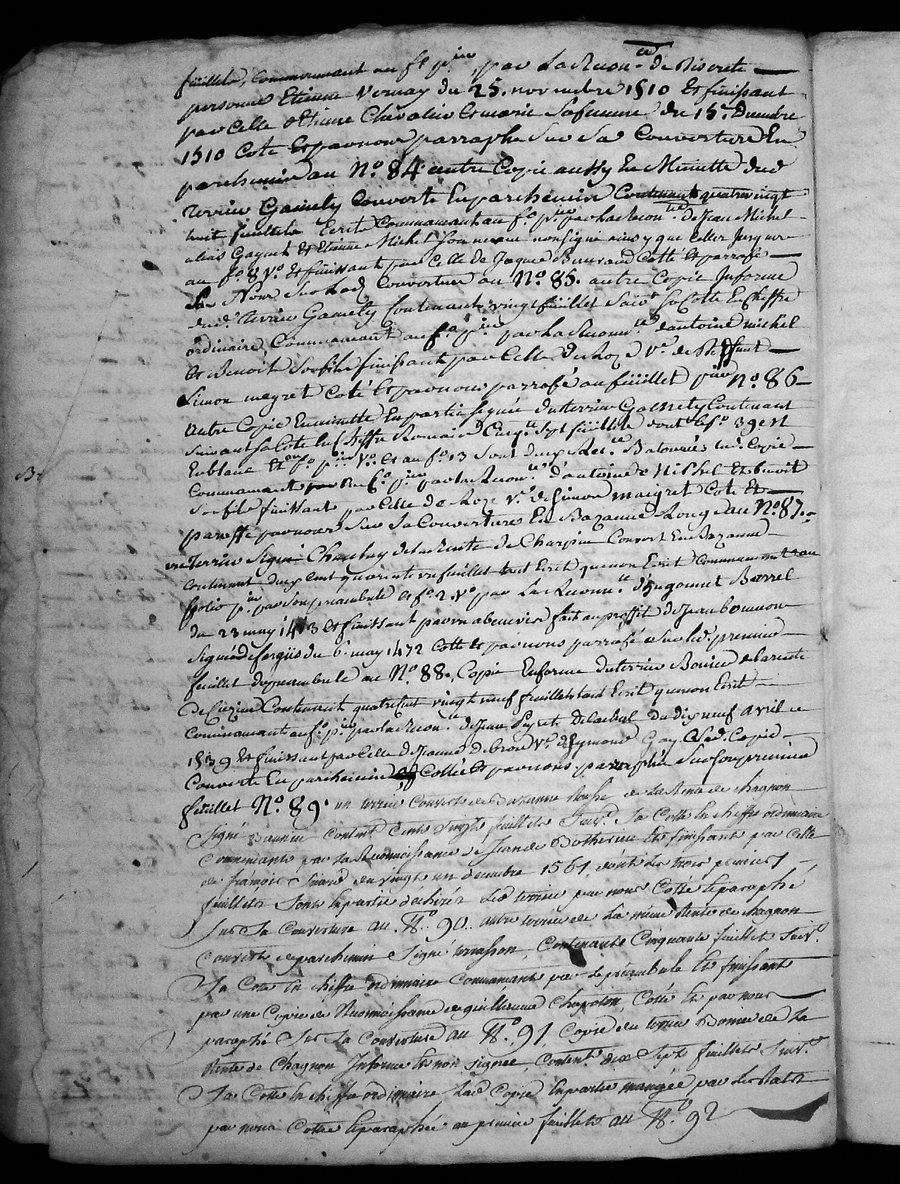 feüillets, commencant au f.º p.ier par La Reconn.ce de Discrete
personne Etienne Vernay du 25. novembre 1510 Et finissant
par celle d'Etienne Chevalier Et marie Sa femme du 15.e Decembre
1510 Coté Et par nous parraphé Sur Sa Couverture En
parchemin au N.º 84 autre Copie aussy En Minutte dud
Terrier Gamety Couverte En parchemin Contenant quatre vingt
huit feuillets Ecrite Commancant au f.º p.ier par La Reconn.ce de Jean Michel
alias Gagnet Et Etienne Michel Son neveu non signé ainsy que celles jusques
au f.º 8 V.º Et finissant par Celle de Jaque Cotté Et parrafé
par Nous Sur Lad. Couverture au N.º 85. autre Copie Informe
dud. Terrier Gamety Contenant vingt feuillets Suiv.t Sa Cotte En Chiffre
ordinaire Commancant au f.º p.ier par La Reconn.ce d'antoine michel
Et Benoit Son fils finissant par Celle de Roze V.e de Deffunt
Simon mayret Coté Et par nous parrafé au feüillet p.ier N.º 86
Autre Copie En minutte En partie signée du terrier Gamety Contenant
Suivant Sa Cote En Chiffre Romain Cinq.te Sept feuillets dont Le f.º 39 est
En blanc Et au f.º p.ier V.º Et au f.º 13 Sont deux Rec.ces Batonnées lad. Copie
Commancant au f.º p.ier par La Reconn.ce d'antoine Michel Et benoit
Son fils finissant par Celle de Roze V.e de Simon maigret Coté Et
paraffé par nous Sur Sa Couverture En Bazanne Rouge au N.º 87.
un Terrier Signé Chauboy de la Rente de Charpin Couvert En Bazanne
Contenant deux Cent quarente un feuillets tant Ecrit que non Ecrit Commancant au
folio p.ier par Son preambule Et f.º 2. V.º par La Reconn.ce d'hugonnet Borrel
du 23 may 1413 Et finissant par un abenevis fait au proffit de Jean bonnow
Signé de fargiis du 6. may 1472 Cotté Et par nous parrafé Sur le d. premier
feuillet de preambule au N.º 88. Copie En forme du terrier Bouier de la rente
de Contenant quatre Cent vingt neuf feuillets tant Ecrit que non Ecrit
Commancant au f.º p.ier par La Recon.ce de Jean Peyret de Lachal Du dix neuf Avril
1539 Et finissant par Celle de Jeanne V.e de Eymond Gay Lad. Copie
Couverte En parchemin Cottée Et par nous parraphée Sur Son premier
feuillet N.º 89. un terrier Couvert de Bazanne Rouge de La Rente de chagnon
Signé Baunier Content Cents Vingts feuillets Suiv.t Sa Cotte En Chiffre ordinnaire
Commencants par La Reconnoissance de Jean de Botherieu Et finissant par Celle
de francois Simard du vingts un decembre 1561 dont Les trois premiers
feuillets Sonts En partie dechirés Led. terrier par nous Cotté & paraphé
Sur Sa Couverture au N.º 90. autre terrier de La meme Rente de chagnon
Couvert de parchemin Signé terrasson, Contenants Cinquante feuillets Suiv.t
Sa Cotte En Chiffre ordinaire Commencants par Le preambule Et finissant
par une Copie de Reconnoissance de guillaume Chapolon, Cotté Et par nous
paraphé Sur La Couverture au N.º 91, Copie du terrier Bonnier de La
Rente de Chagnon Informe Et non signée, Content. dix Sept feuillets Suiv.t
Sa Cotte En Chiffre ordinaire, Lad. Copie En partie mangée par Les Ratts
par nous Cotée & paraphée au premier feuillets au N.º 92